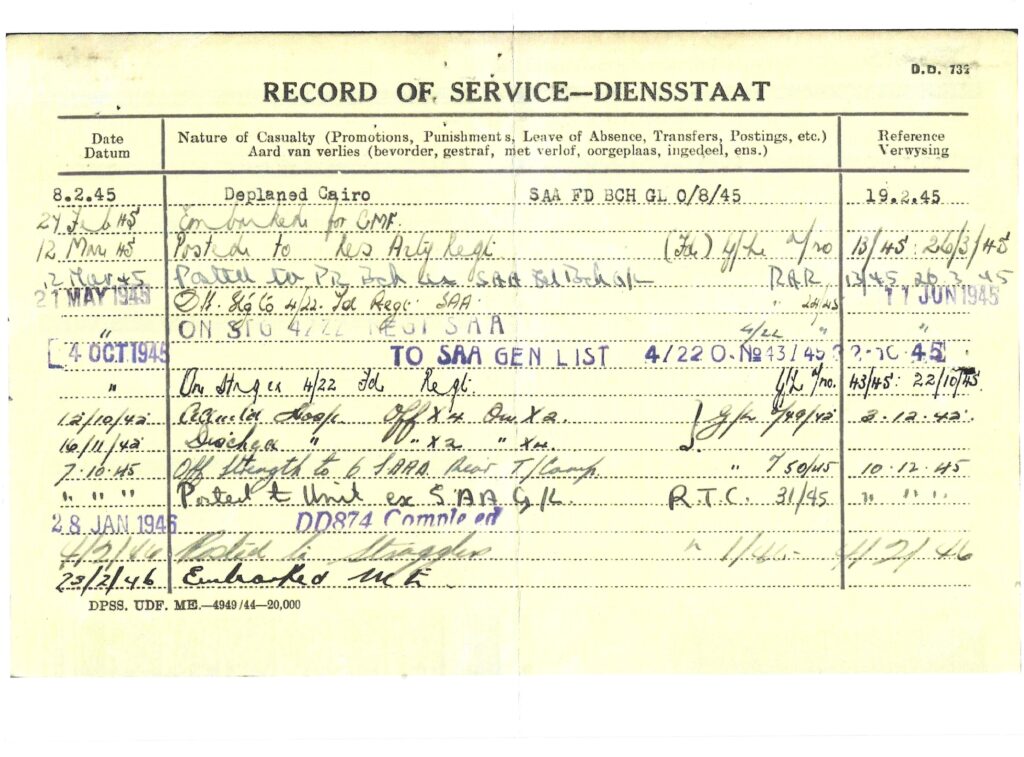 D.D. 732
RECORD OF SERVICE—DIENSSTAAT
Date Nature of Casualty (Promotions, Punishments, Leave of Absence, Transfers, Postings, etc.) Reference
Datum Aard van verlies (bevorder, gestraf, met verlof, oorgeplaas, ingedeel, ens.) Verwysing
8.2.45 Deplaned Cairo SAA FD BCH GL O/8/45 19.2.45
24 Feb 45 Embarked for CMF.
12 Mar 45 Posted to Res Arty Regt (Fd) G/L 13/45 26/3/45
12 Mar 45 Posted to ex SAA RAR 13/45 26.3.45
21 MAY 1945 4/22 Fd Regt. SAA. " 11 JUN 1945
" ON STG 4/22 REGT SAA 4/22 " "
4 OCT. 1945 TO SAA GEN LIST 4/22 O. No 43/45 45
" On Strg ex 4/22 Fd Regt. G/L O/no. 43/45: 22/10/45
12/10/42 Hosp Off X4 On X2. 2.12.42
16/11/42 " " X2 " X4
7.10.45 Off Strength to 6 Rear T/Camp. " 50/45 10.12.45
" " " Posted to Unit ex SAA G/L. R.T.C. 31/45 " " "
28 JAN 1946 DD874 Completed
4/2/46 Posted to " 1/46 4/2/46
23/2/46 Embarked M E
DPSS. UDF. ME.—4949/44—20,000